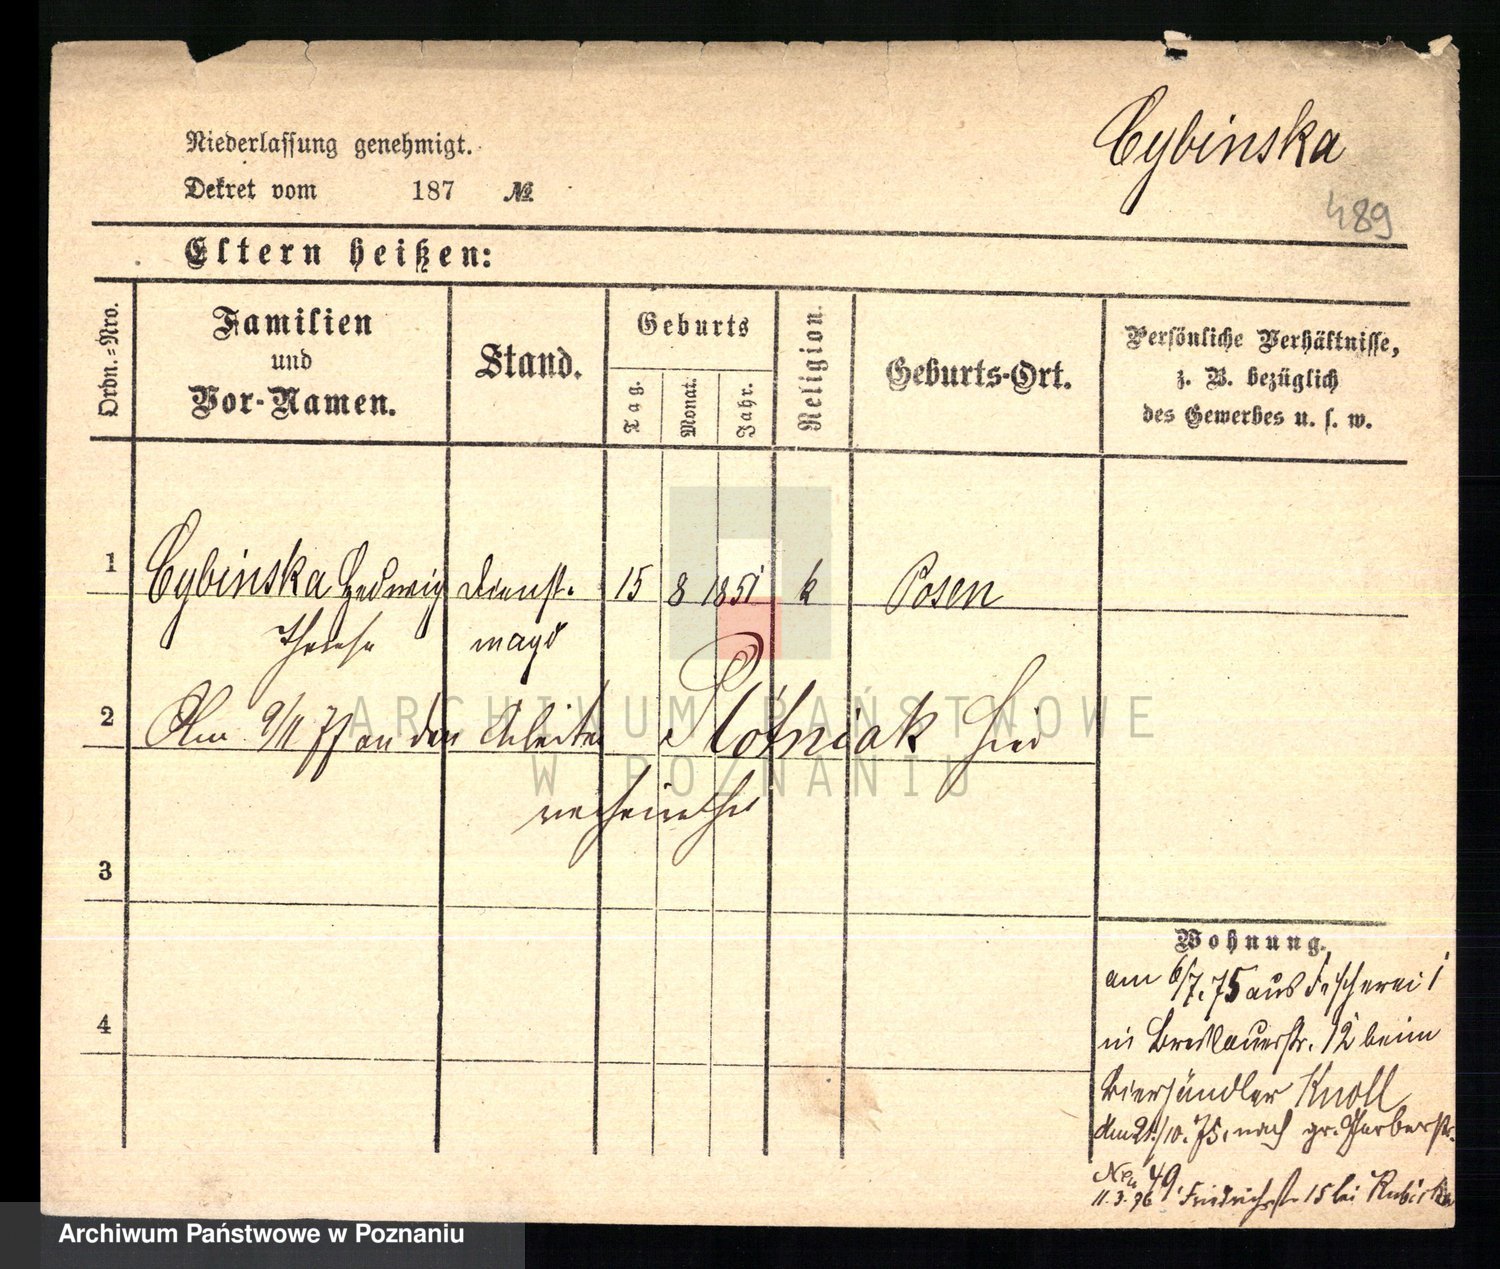 Cybinska
489
Niederlassung genehmigt.
Dekret vom 187 №
Eltern heißen:
Ordn.=Nro.
Familien
und
Vor-Namen.
Stand.
Geburts
Tag.
Monat.
Jahr.
Religion.
Geburts-Ort.
Persönliche Verhältnisse,
z. B. bezüglich
des Gewerbes u. s. w.
1 Cybinska Hedwig Dienst- 15 8 1851 k Posen
Therese magd
2 Am 9/11 77 an den Arbeiter Plótniak hier
verheirathet
3
4
Wohnung.
am 6/7. 75 aus Fischerei 1
in Breslauerstr. 12 beim
Bierhändler Knoll
Am 21./10. 75. nach gr. Gerberstr.
49
11.3.76 Friedrichstr 15 bei
ARCHIWUM PAŃSTWOWE
W POZNANIU
Archiwum Państwowe w Poznaniu